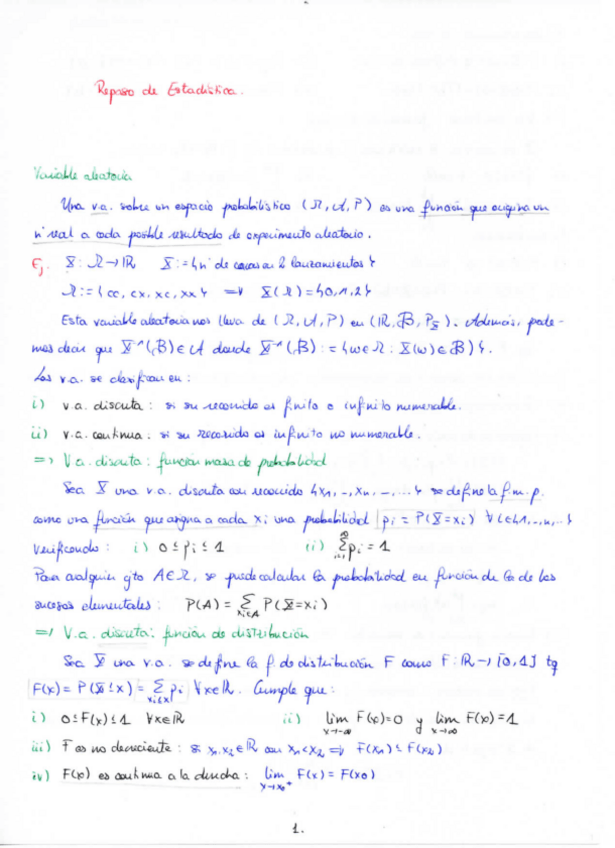 Repaso de Estadística.
Variable aleatoria
Una v.a. sobre un espacio probabilístico (Ω, A, P) es una función que asigna un
nº real a cada posible resultado de experimento aleatorio.
Ej. X: Ω → ℝ X := {nº de caras en 2 lanzamientos}
Ω := {cc, cx, xc, xx} ⇒ X(Ω) = {0, 1, 2}
Esta variable aleatoria nos lleva de (Ω, A, P) en (ℝ, B, P_X). Además, pode-
mos decir que X⁻¹(B) ∈ A donde X⁻¹(B) := {ω ∈ Ω : X(ω) ∈ B}.
Las v.a. se clasifican en:
i) v.a. discreta: si su recorrido es finito o infinito numerable.
ii) v.a. continua: si su recorrido es infinito no numerable.
⇒ V.a. discreta: función masa de probabilidad
Sea X una v.a. discreta con recorrido {x₁, .., xₙ, -, ...} se define la f.m.p.
como una función que asigna a cada xᵢ una probabilidad pᵢ = P(X = xᵢ) ∀ i ∈ {1, .., n, ..}
verificando: i) 0 ≤ pᵢ ≤ 1 ii) ∑_{i=1}^∞ pᵢ = 1
Para cualquier cjto A ∈ Ω, se puede calcular la probabilidad en función de la de los
sucesos elementales: P(A) = ∑_{xᵢ∈A} P(X = xᵢ)
⇒ V.a. discreta: función de distribución
Sea X una v.a. se define la f. de distribución F como F: ℝ → [0, 1] tq
F(x) = P(X ≤ x) = ∑_{xᵢ≤x} pᵢ ∀x ∈ ℝ. Cumple que:
i) 0 ≤ F(x) ≤ 1 ∀x ∈ ℝ ii) lim_{x→-∞} F(x) = 0 y lim_{x→∞} F(x) = 1
iii) F es no decreciente: si x₁, x₂ ∈ ℝ con x₁ < x₂ ⇒ F(x₁) ≤ F(x₂)
iv) F(x) es continua a la derecha: lim_{x→x₀⁺} F(x) = F(x₀)
1.